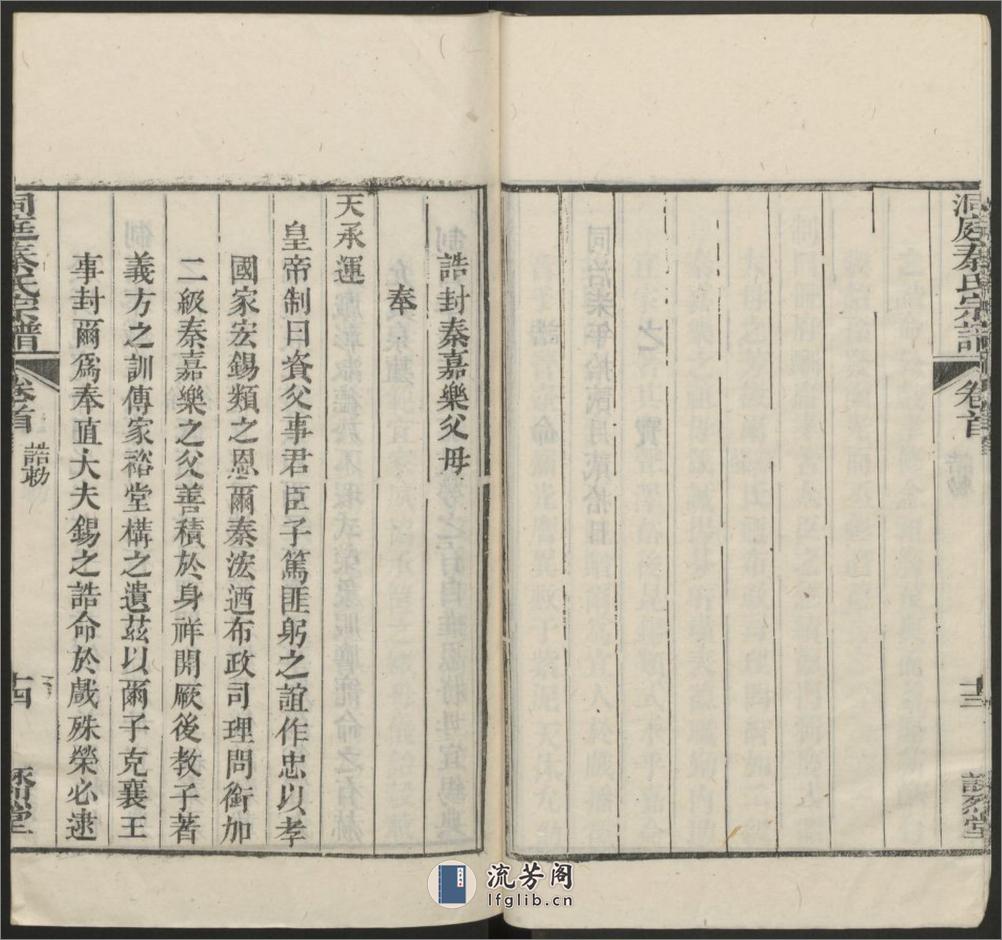 洞庭秦氏宗譜
卷首
十三
詒燕堂
誥封秦嘉樂父母
奉
天承運
皇帝制曰資父事君臣子篤匪躬之誼作忠以孝
國家宏錫類之恩爾秦浤迺布政司理問銜加
二級秦嘉樂之父善積於身祥開厥後教子著
義方之訓傳家裕堂構之遺茲以爾子克襄王
事封爾爲奉直大夫錫之誥命於戲殊榮必逮
洞庭秦氏宗譜
卷首
誥勅
十四
流芳阁
lfglib.cn